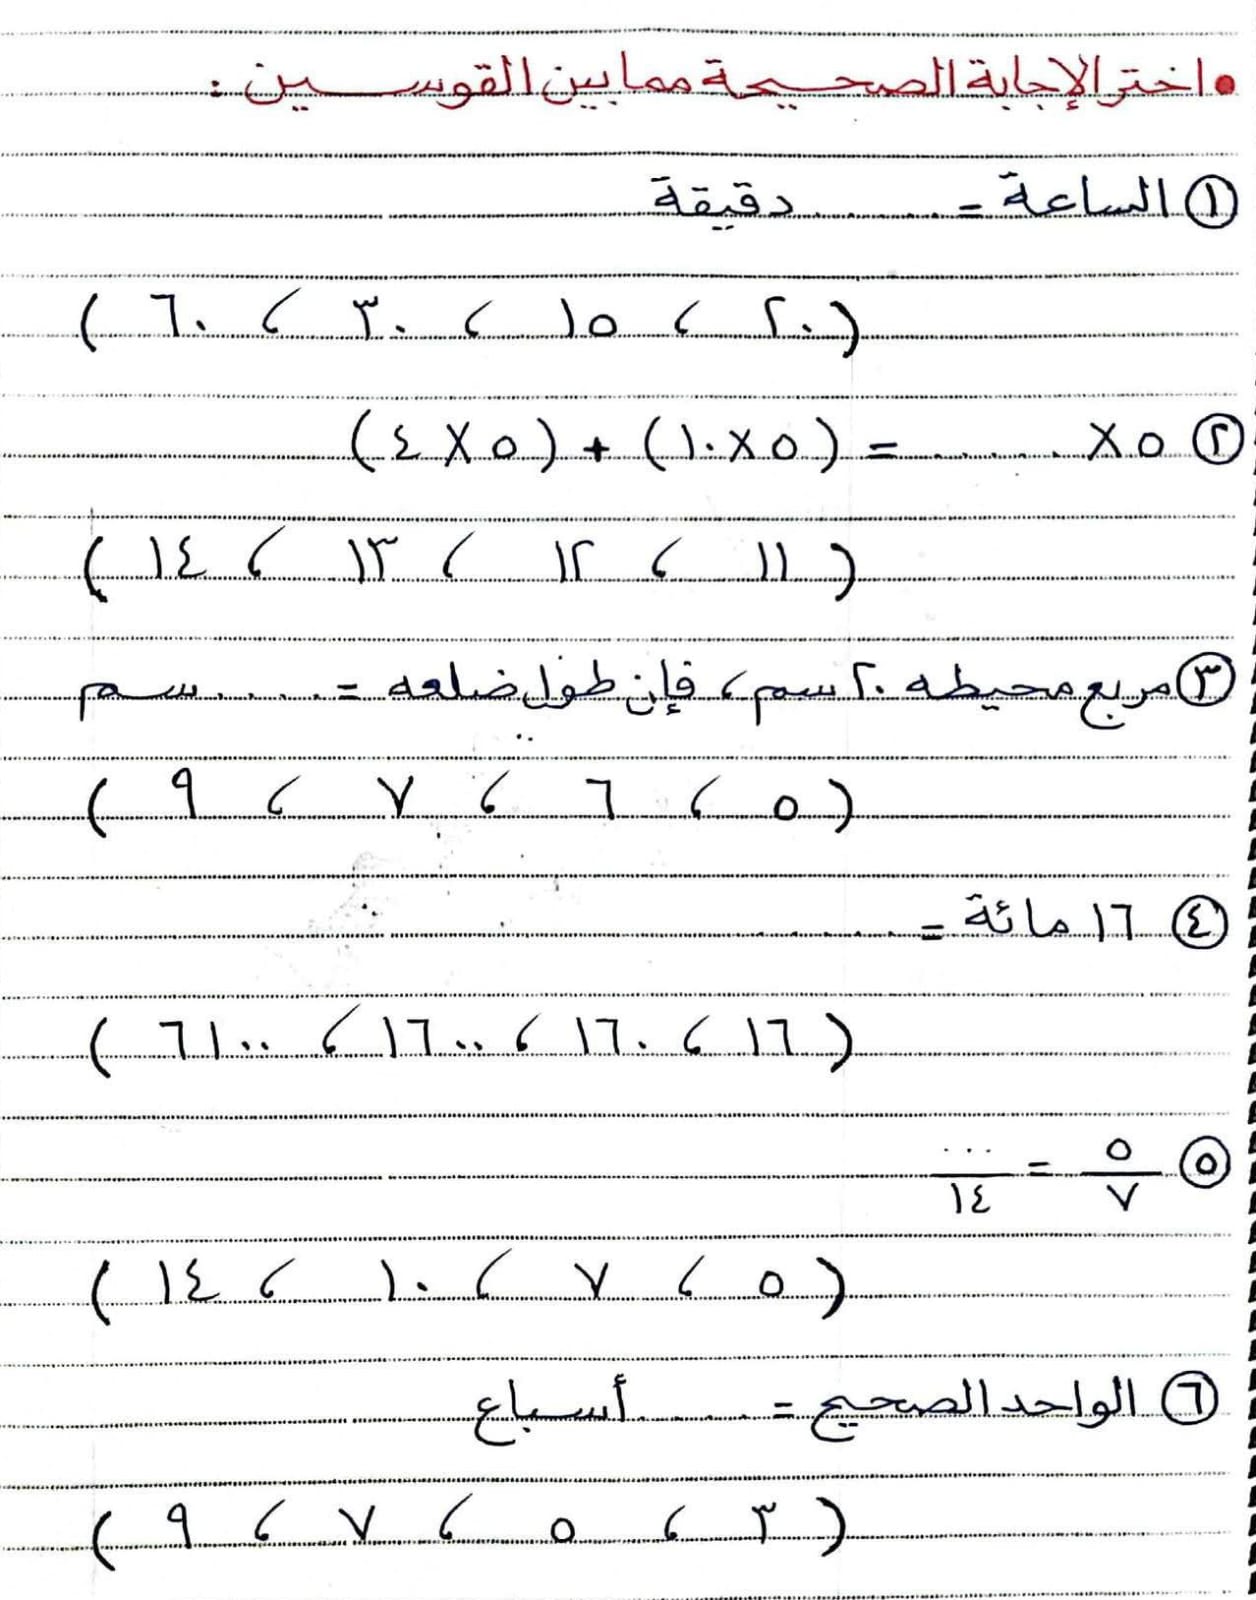 • اختر الإجابة الصحيحة مما بين القوسين :
① الساعة = ........ دقيقة
( ٢٠ ، ١٥ ، ٣٠ ، ٦٠ )
② ٥ × ........ = ( ٥ × ١٠ ) + ( ٥ × ٤ )
( ١١ ، ١٢ ، ١٣ ، ١٤ )
③ مربع محيطه ٢٠ سم ، فإن طول ضلعه = ..... سم
( ٥ ، ٦ ، ٧ ، ٩ )
④ ١٦ مائة = ........
( ١٦ ، ١٦٠ ، ١٦٠٠ ، ٦١٠٠ )
⑤ ٥/٧ = .../١٤
( ٥ ، ٧ ، ١٠ ، ١٤ )
⑥ الواحد الصحيح = ........ أسباع
( ٣ ، ٥ ، ٧ ، ٩ )